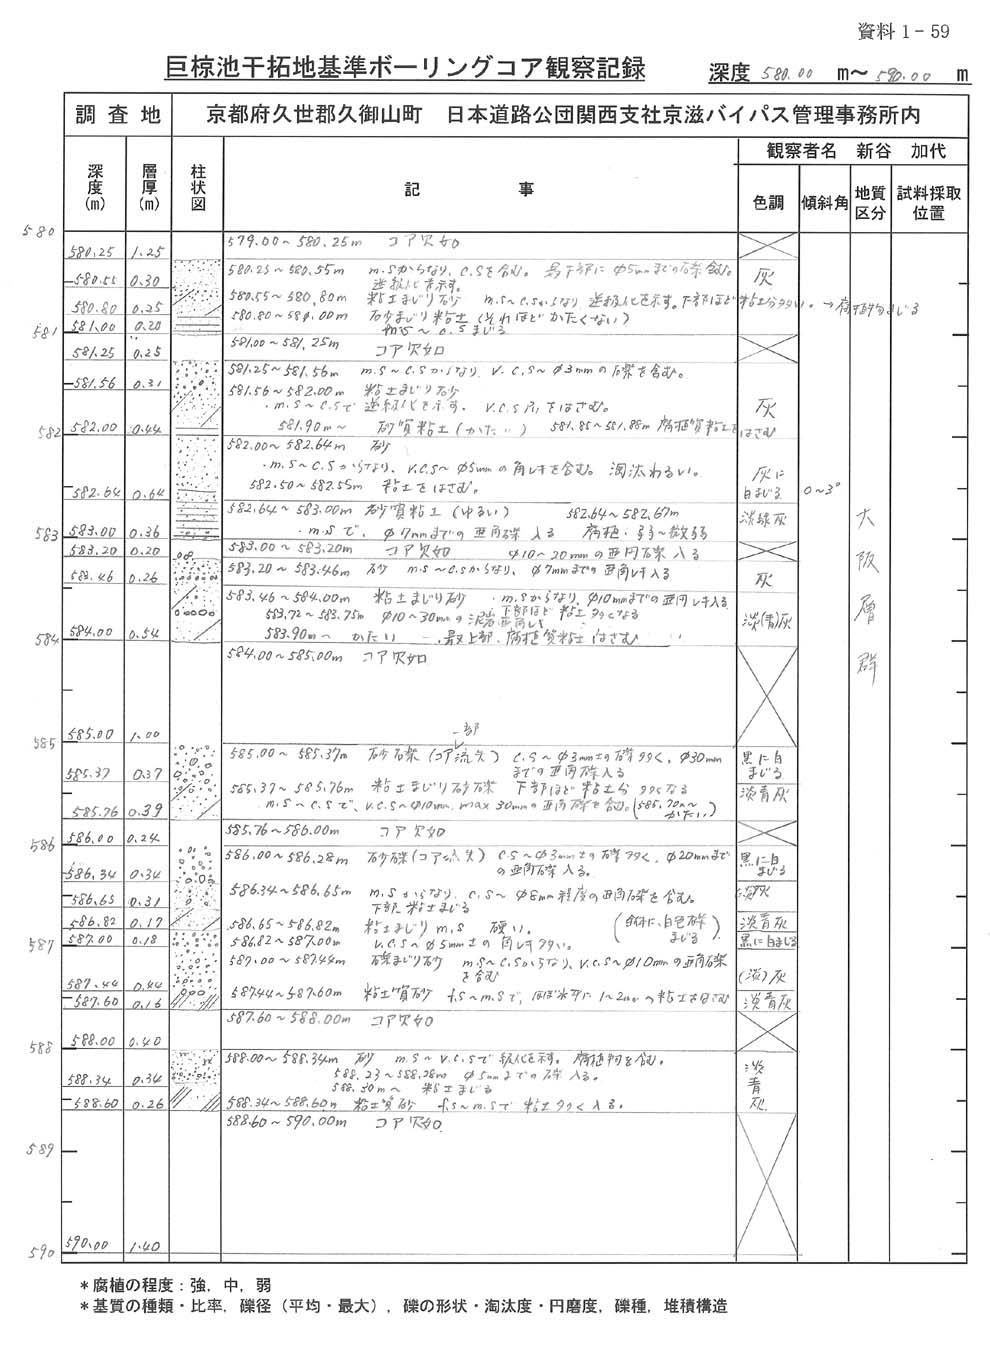 資料1-59
巨椋池干拓地基準ボーリングコア観察記録 深度 580.00 m～ 590.00 m
調査地 京都府久世郡久御山町 日本道路公団関西支社京滋バイパス管理事務所内
観察者名 新谷 加代
深度(m) 層厚(m) 柱状図 記事 色調 傾斜角 地質区分 試料採取位置
580
580.25 1.25 579.00～580.25m コア欠如
580.55 0.30 580.25～580.55m m.Sからなり、C.Sを含む。最下部にφ5mmまでの礫含む。 灰
逆級化を示す。
580.80 0.25 580.55～580.80m 粘土まじり砂 m.S～C.Sからなり 逆級化を示す。下部ほど粘土分多い。→腐植物まじる
581.00 0.20 580.80～581.00m 砂まじり粘土(それほどかたくない)
581 m.S～C.Sまじる
581.25 0.25 581.00～581.25m コア欠如
581.56 0.31 581.25～581.56m m.S～C.Sからなり、V.C.S～φ3mmの礫を含む。
581.56～582.00m 粘土まじり砂
・m.S～C.Sで逆級化を示す。V.C.S所々をはさむ。 灰
582 582.00 0.44 581.90m～ 砂質粘土(かたい) 581.85～581.88m 腐植質粘土をはさむ
582.00～582.64m 砂
・m.S～C.Sからなり、V.C.S～φ5mmの角レキを含む。淘汰わるい。 灰に白まじる
582.64 0.64 582.50～582.55m 粘土をはさむ。 0～3°
582.64～583.00m 砂質粘土(ゆるい) 582.64～582.67m 淡緑灰
583 583.00 0.36 ・m.Sで、φ7mmまでの亜角礫入る 腐植・弱～微弱
583.20 0.20 583.00～583.20m コア欠如 φ10～20mmの亜円礫入る
583.46 0.26 583.20～583.46m 砂 m.S～C.Sからなり、φ7mmまでの亜角レキ入る 灰
583.46～584.00m 粘土まじり砂 ・m.Sからなり、φ10mmまでの亜円レキ入る
583.72～583.75m φ10～30mmの亜角レキ 下部ほど粘土多くなる 淡(青)灰
584 584.00 0.54 583.90m～ かたい 最上部、腐植質粘土はさむ
大阪層群
584.00～585.00m コア欠如
585 585.00 1.00
一部
585.37 0.37 585.00～585.37m 砂礫(コア流失) C.S～φ3mm±の礫多く、φ30mm 黒に白まじる
までの亜角礫入る
585.37～585.76m 粘土まじり砂礫 下部ほど粘土分多くなる 淡青灰
585.76 0.39 m.S～C.Sで、V.C.S～φ10mm、max 30mmの亜角礫を含む。(585.70m～かたい)
586 586.00 0.24 585.76～586.00m コア欠如
586.34 0.34 586.00～586.28m 砂礫(コア流失) C.S～φ3mm±の礫多く、φ20mmまで 黒に白まじる
の亜角礫入る。
586.65 0.31 586.34～586.65m m.Sからなり、C.S～φ8mm程度の亜角礫を含む。 淡灰
下部、粘土まじる
586.82 0.17 586.65～586.82m 粘土まじりm.S 硬い。 淡青灰
587 587.00 0.18 586.82～587.00m V.C.S～φ5mm±の角レキ多い。 (全体に、白色礫まじる) 黒に白まじる
587.44 0.44 587.00～587.44m 礫まじり砂 m.S～C.Sからなり、V.C.S～φ10mmの亜角礫を含む (淡)灰
587.60 0.16 587.44～587.60m 粘土質砂 f.S～m.Sで、ほぼ水平に1～2mmの粘土をはさむ 淡青灰
588 588.00 0.40 587.60～588.00m コア欠如
588.34 0.34 588.00～588.34m 砂 m.S～V.C.Sで級化を示す。腐植物を含む。 淡青灰
588.23～588.28m φ5mmまでの礫入る。
588.30m～ 粘土まじる
588.60 0.26 588.34～588.60m 粘土質砂 f.S～m.Sで粘土多く入る。
588.60～590.00m コア欠如
589
590 590.00 1.40
＊腐植の程度：強，中，弱
＊基質の種類・比率，礫径（平均・最大），礫の形状・淘汰度・円磨度，礫種，堆積構造